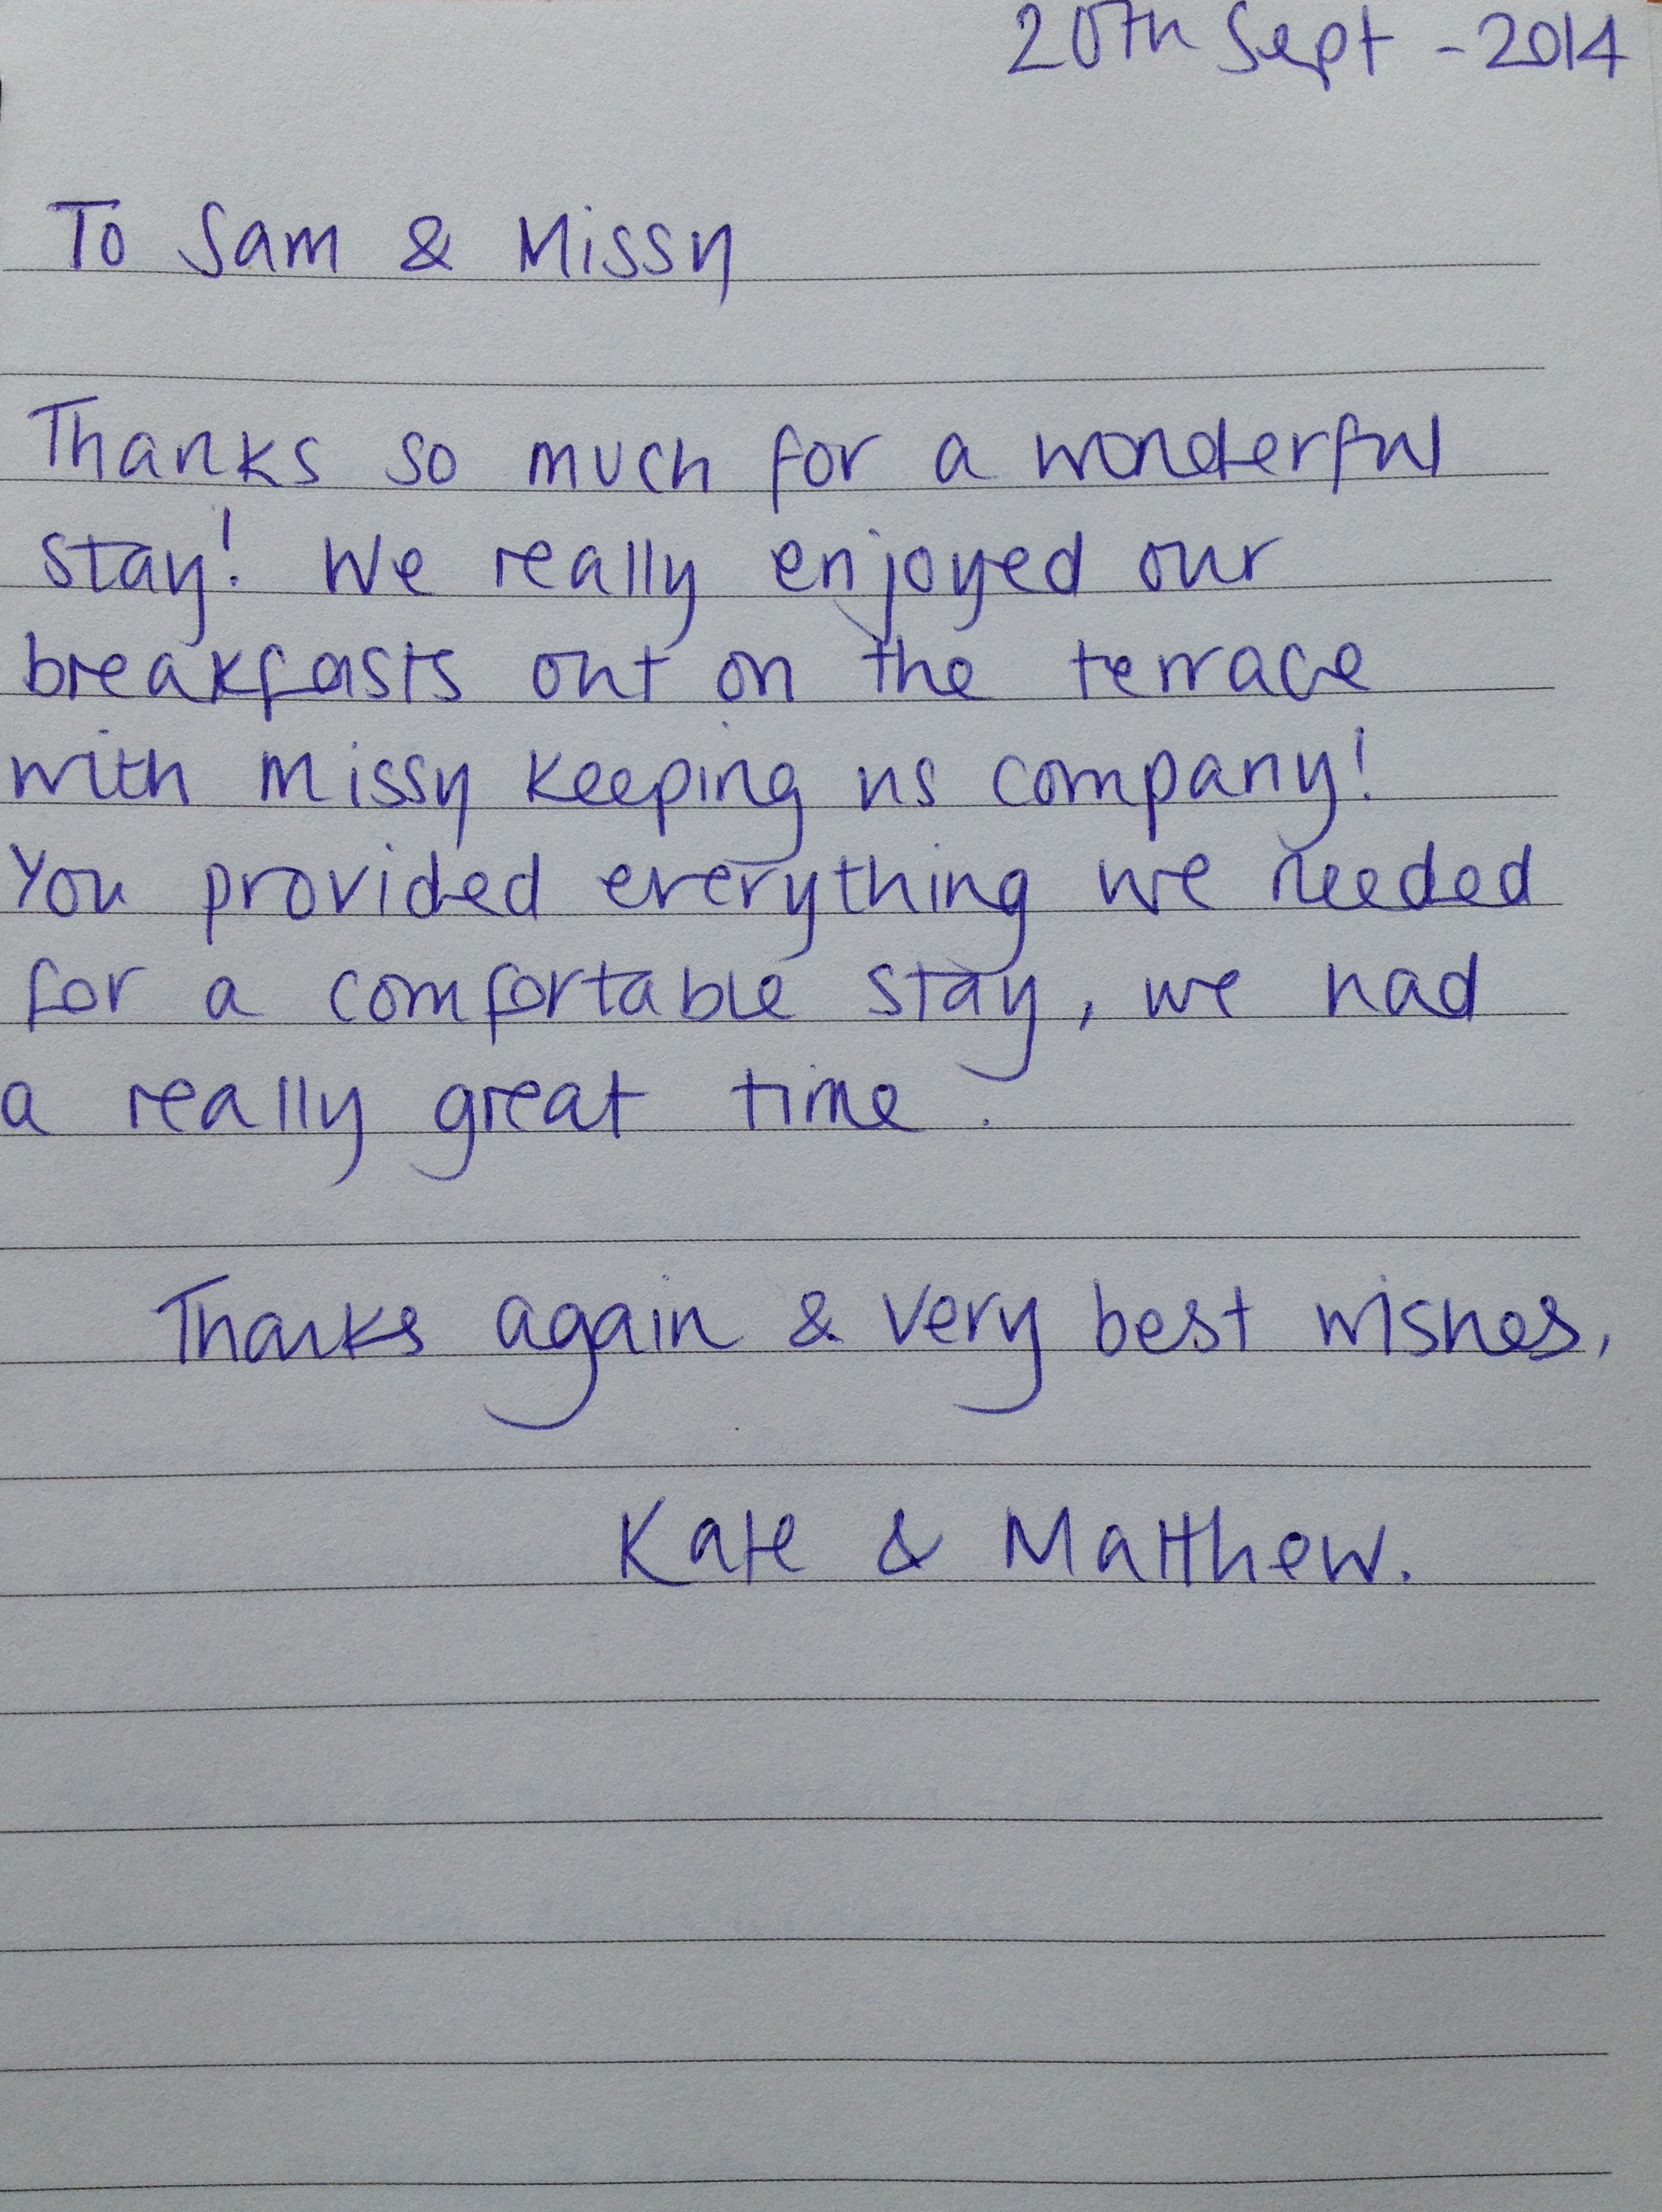 20th Sept - 2014
To Sam & Missy
Thanks so much for a wonderful
stay! We really enjoyed our
breakfasts out on the terrace
with Missy keeping us company!
You provided everything we needed
for a comfortable stay, we had
a really great time.
Thanks again & very best wishes,
Kate & Matthew.